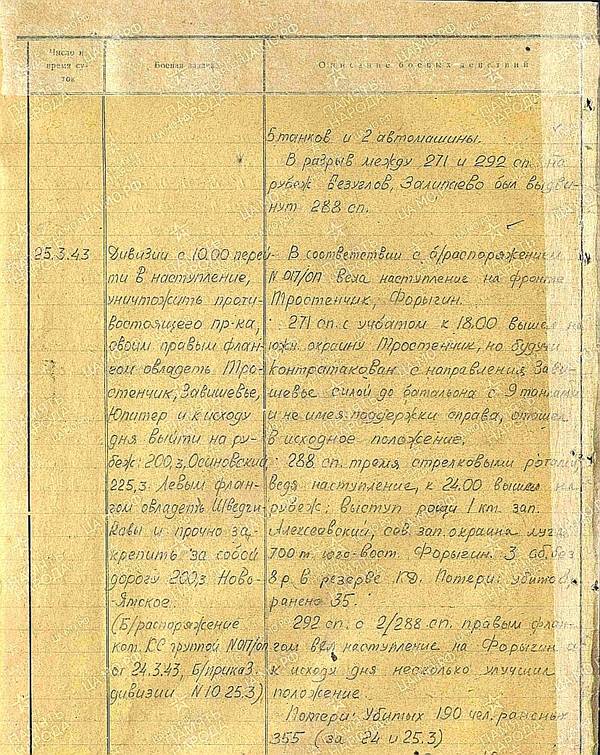 Число и
время су-
ток
Боевая задача
Описание боевых действий
5 танков и 2 автомашины.
В разрыв между 271 и 292 сп. на
рубеж Безуглов, Залипаево был выдви-
нут 288 сп.
25.3.43
Дивизии с 10.00 перей-
ти в наступление,
уничтожить проти-
востоящего пр-ка,
своим правым флан-
гом овладеть Тро-
стенчик, Завишевье,
Юпитер и к исходу
дня выйти на ру-
беж: 200,3, Осиновский,
225,3. Левым флан-
гом овладеть Шведчи-
ковы и прочно за-
крепить за собой
дорогу 200,3 Ново-
Ямское.
(Б/распоряжение
ком. КС группой N017/оп
от 24.3.43, Б/приказ
дивизии N10 25.3)
В соответствии с б/распоряжением
N 017/ОП вела наступление на фронте
Тростенчик, Форыгин.
271 сп. с учбатом к 18.00 вышел на
южн. окраину Тростенчик, но будучи
контратакован с направления Зави-
шевье силой до батальона с 9 танками
и не имея поддержки справа, отошел
в исходное положение.
288 сп. тремя стрелковыми ротами
ведя наступление, к 24.00 вышел на
рубеж: выступ рощи 1 км. зап.
Алексеевский, сев. зап. окраина
700 м. юго-вост. Форыгин. 3 сб. без
8 р. в резерве КД. Потери: убито 8,
ранено 35.
292 сп. с 2/288 сп. правым флан-
гом вел наступление на Форыгин и
к исходу дня несколько улучшил
положение.
Потери: Убитых 190 чел. раненых
355 (за 24 и 25.3)